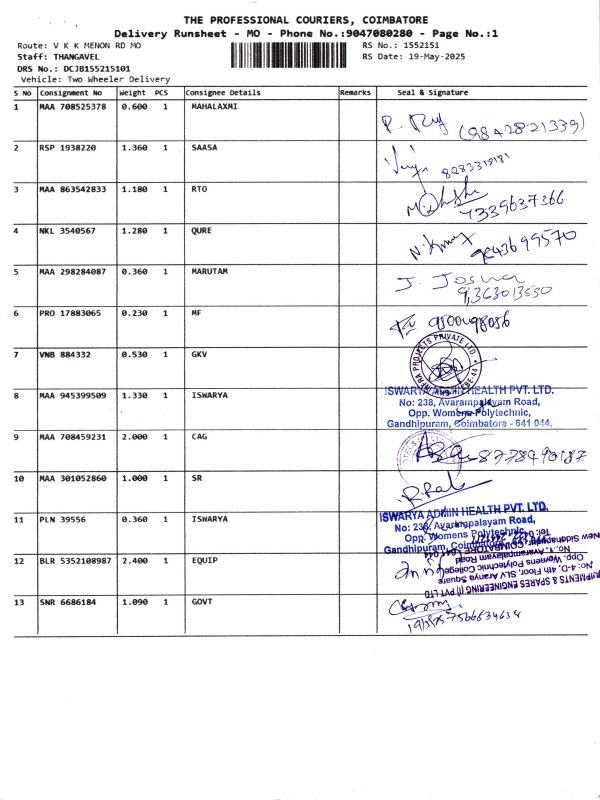 THE PROFESSIONAL COURIERS, COIMBATORE
Delivery Runsheet - MO - Phone No.:9047080280 - Page No.:1
Route: V K K MENON RD MO
RS No.: 1552151
Staff: THANGAVEL
RS Date: 19-May-2025
DRS No.: DCJB155215101
Vehicle: Two Wheeler Delivery
S No Consignment No Weight PCS Consignee Details Remarks Seal & Signature
1 MAA 708525378 0.600 1 MAHALAXMI
(9842821339)
2 RSP 1938220 1.360 1 SAASA
3 MAA 863542833 1.180 1 RTO
7339637366
4 NKL 3540567 1.280 1 QURE
9043699570
5 MAA 298284087 0.360 1 MARUTAM
J. Josua
9363013650
6 PRO 17883065 0.230 1 MF
9500498086
7 VNB 884332 0.530 1 GKV
PROJECTS PRIVATE LTD.
8 MAA 945399509 1.330 1 ISWARYA
ISWARYA ADMIN HEALTH PVT. LTD.
No: 238, Avarampalayam Road,
Opp. Womens Polytechnic,
Gandhipuram, Coimbatore - 641 044.
9 MAA 708459231 2.000 1 CAG
8778490187
10 MAA 301052860 1.000 1 SR
11 PLN 39556 0.360 1 ISWARYA
ISWARYA ADMIN HEALTH PVT. LTD.
No: 238, Avarampalayam Road,
Opp. Womens Polytechnic,
Gandhipuram, Coimbatore
12 BLR 5352108987 2.400 1 EQUIP
SPARES ENGINEERING (I) PVT LTD
No: 4-D, 4th Floor, SLV Aranya Square
Opp. Womens Polytechnic College
Avarampalayam Road
New Siddhapudur, COIMBATORE
13 SNR 6686184 1.090 1 GOVT
7566634634